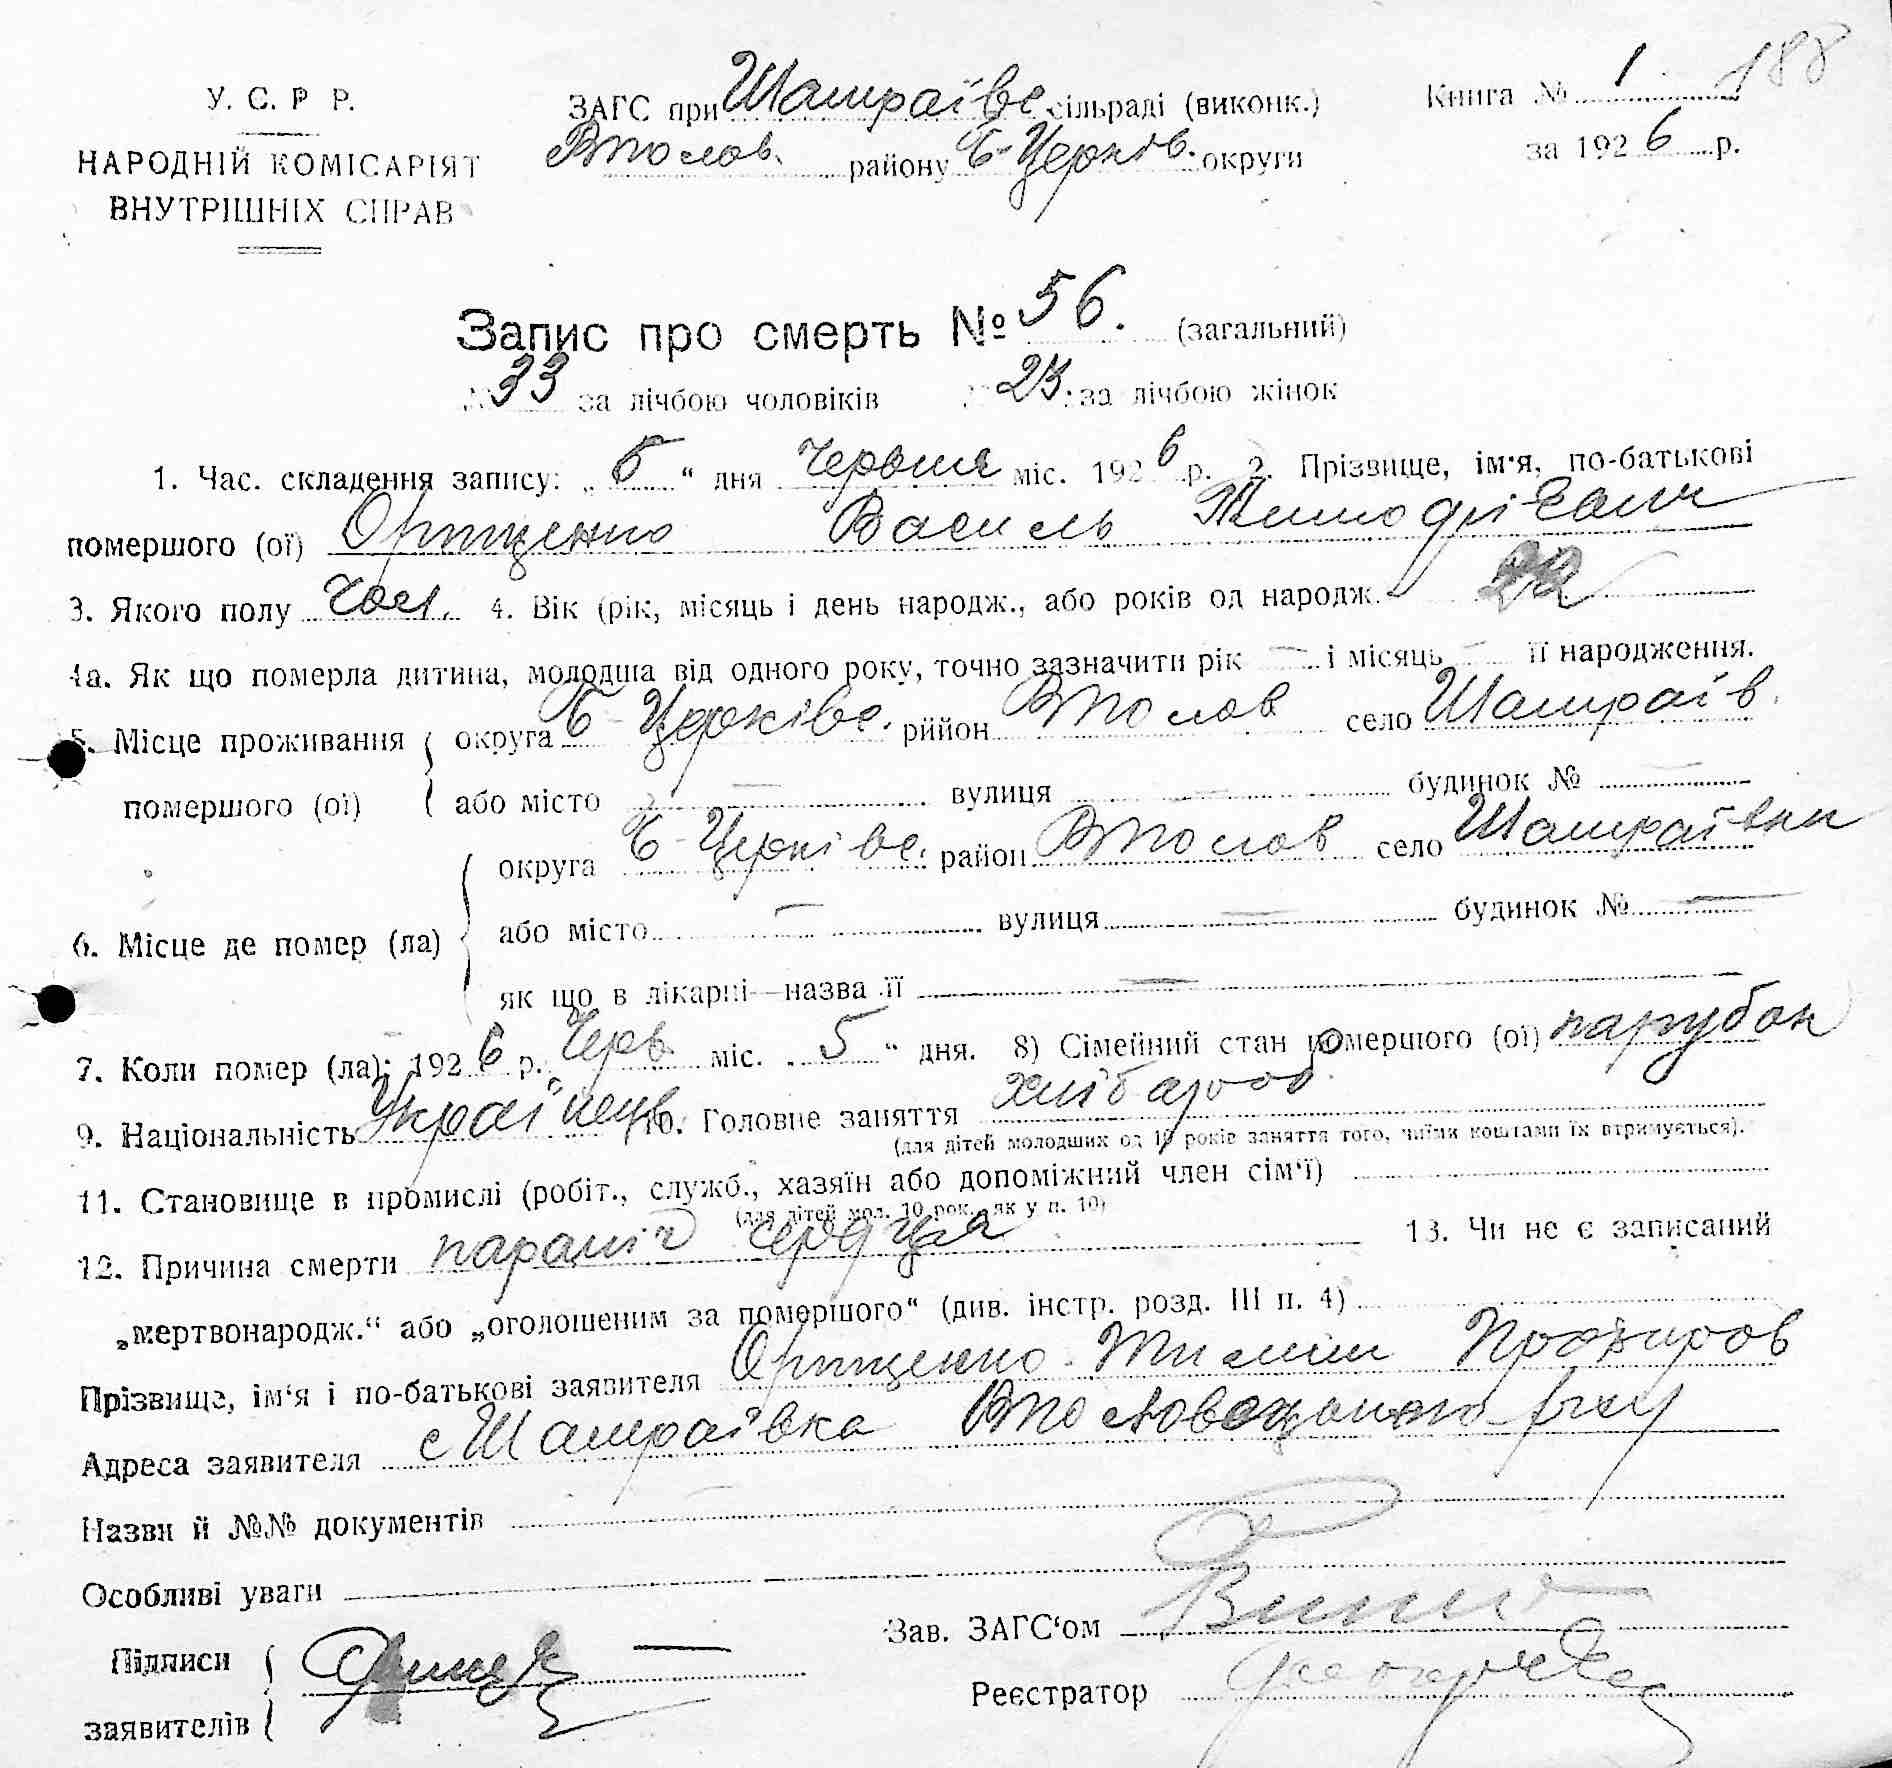 188
У. С. Р Р.
НАРОДНІЙ КОМІСАРІЯТ
ВНУТРІШНІХ СПРАВ
ЗАГС при Шамраївс сільраді (виконк.)
Втолов. району Б-Церків. округи
Книга № 1
за 1926 р.
Запис про смерть № 56. (загальний)
№ 33 за лічбою чоловіків № 23. за лічбою жінок
1. Час. складення запису: „ 5 “ дня Червня міс. 1926 р. 2. Прізвище, ім'я, по-батькові
помершого (ої) Орищенко Василь Тимофієвич
3. Якого полу Чол. 4. Вік (рік, місяць і день народж., або років од народж. 22
4а. Як що померла дитина, молодша від одного року, точно зазначити рік — і місяць — її народження.
5. Місце проживання округа Б-Церківс. рийон Втолов село Шамраїв.
помершого (ої) або місто — вулиця — будинок № —
округа Б-Церківс. район Втолов село Шамраївки
6. Місце де помер (ла) або місто — вулиця — будинок № —
як що в лікарні—назва її —
7. Коли помер (ла): 1926 р. Черв міс. „ 5 “ дня. 8) Сімейний стан помершого (ої) парубок
9. Національність Українець 10. Головне заняття хлібороб
(для дітей молодших од 10 років заняття того, чиїми коштами їх втримується).
11. Становище в промислі (робіт., служб., хазяїн або допоміжний член сім‘ї)
(для дітей мол. 10 рок., як у п. 10)
12. Причина смерти параліч сердця 13. Чи не є записаний
„мертвонародж.“ або „оголошеним за помершого“ (див. інстр. розд. III п. 4)
Прізвище, ім‘я і по-батькові заявителя Орищенко
Адреса заявителя с Шамраївка
Назви й №№ документів
Особливі уваги
Підписи
заявителів
Зав. ЗАГС‘ом
Реєстратор